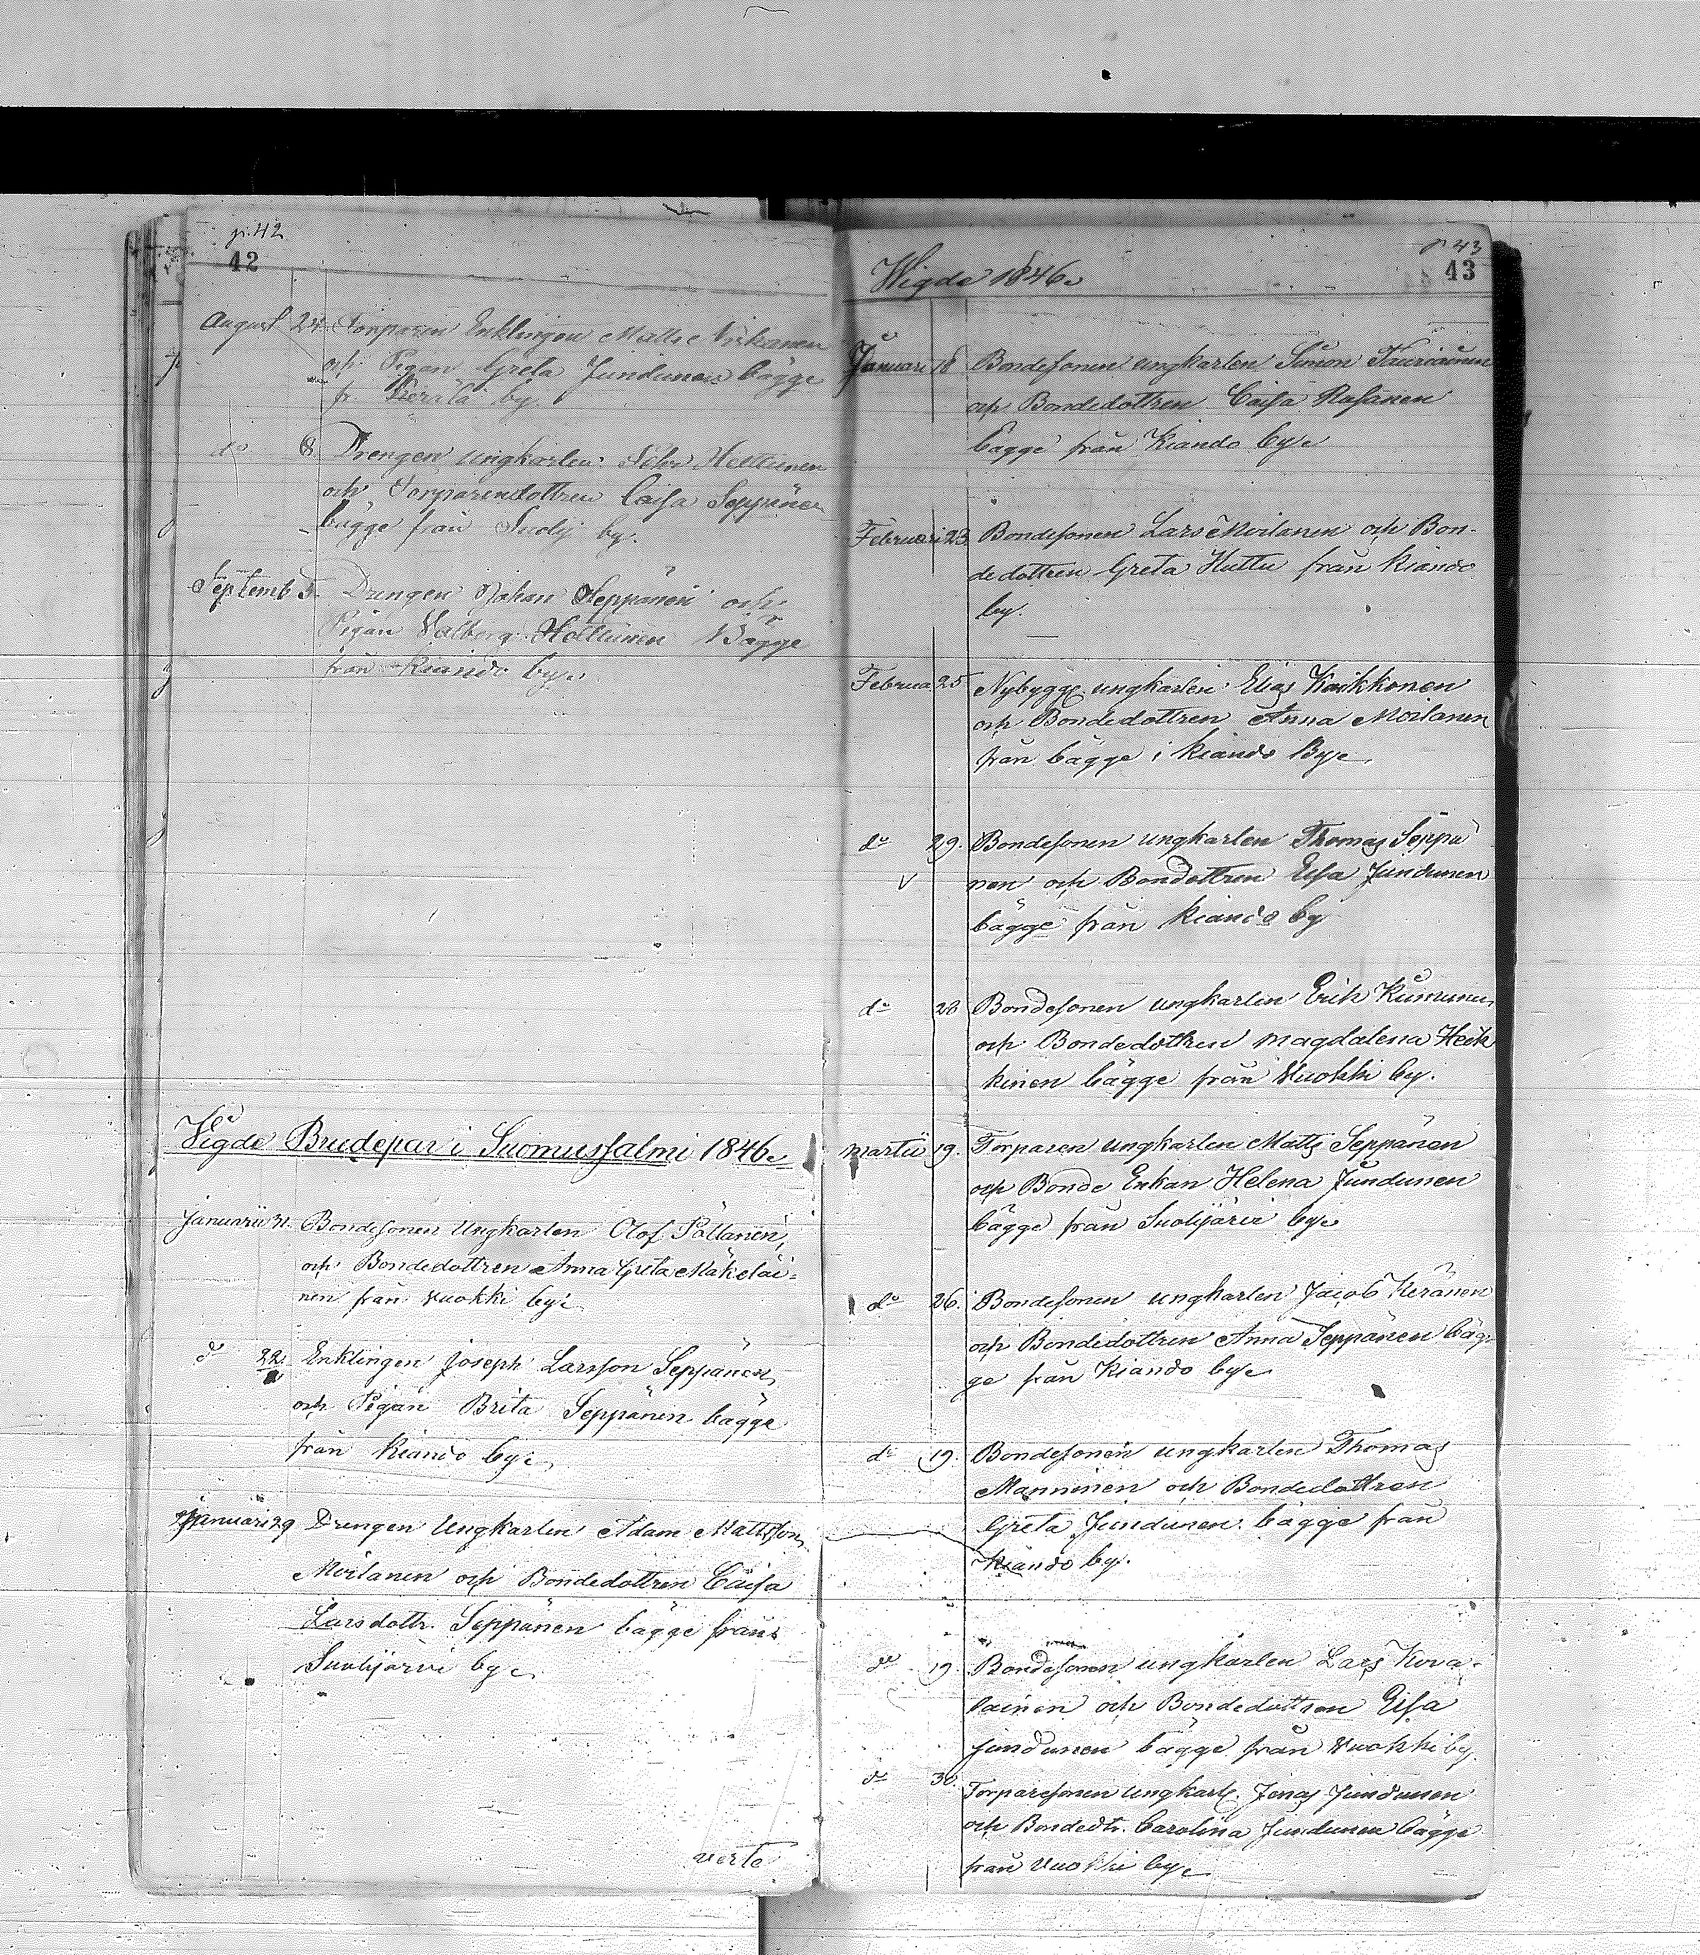 p. 42
42
August 24. Torparen Enklingen Matts Niskanen
och Pigan Greta Jundunen bägge
fr. Kerälä by.
do 8 Drengen ungkarlen Heltunen
och Torparendottren Caisa Seppänen
bägge från Suolij by.
Septemb 5. Drengen Johan Seppänen och
Pigan Valborg Holtunen Bägge
från Kiando by.
Vigde Brudepar i Suomussalmi 1846.
Januarii 31. Bondesonen Ungkarlen Olof Pöllänen,
och Bondedottren Anna Greta Mäkeläi=
nen från Vuokki by.
do 22 Enklingen Joseph Larsson Seppänen
och Pigan Brita Seppänen bägge
från Kiando by.
Januarii 29 Drengen Ungkarlen Adam Mattsson
Moilanen och Bondedottren Caisa
Larsdottr. Seppänen bägge från
Suolijärvi by.
verte
p 43
43
Wigde 1846.
Januari 18 Bondesonen ungkarlen Simon Kauriainen
och Bondedottren Caisa Rasanen
bägge från Kiando by.
Februari 23. Bondesonen Lars Moilanen och Bon-
dedottren Greta Huttu från Kiando
by.
Februa 25 Nybygg. ungkarlen Elias Karkkonen
och Bondedottren Anna Moilanen
från bägge i Kiando By.
do 29. Bondesonen ungkarlen Thomas Seppä
nen och Bondottren Elsa Jundunen
bägge från Kiando by
do 28 Bondesonen ungkarlen Erik
och Bondedottren Magdalena Heik
kinen bägge från Vuokki by.
Martii 19. Torparen ungkarlen Matts Seppänen
och Bonde Enkan Helena Jundunen
bägge från Suolijärvi by.
do 26. Bondesonen ungkarlen Jacob Keränen
och Bondedottren Anna Seppänen bäg-
ge från Kiando by.
do 19. Bondesonen ungkarlen Thomas
Manninen och Bondedottren
Greta Jundunen bägge från
Kiando by.
do 19 Bondesonen ungkarlen Lars Kova-
lainen och Bondedottren Elsa
Jundunen bägge från Vuokki by.
do 30. Torparesonen ungkarl. Jonas Jundunen
och Bondedtr. Carolina Jundunen bägge
från Vuokki by.